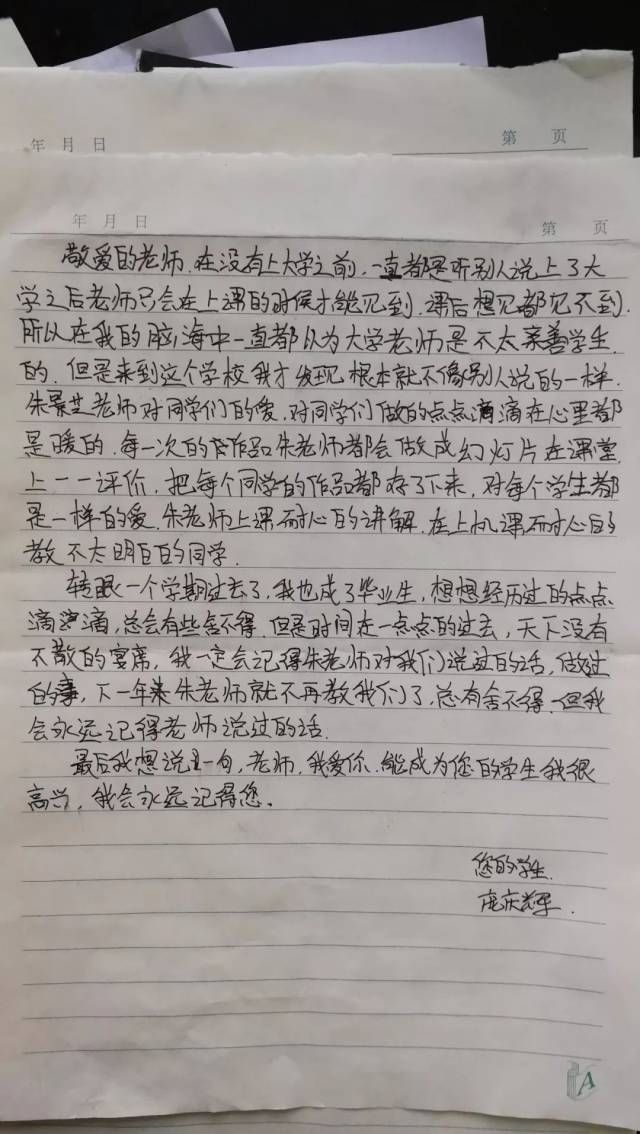 年 月 日 第 页
年 月 日 第 页
敬爱的老师.在没有上大学之前,一直都是听别人说上了大
学之后老师只会在上课的时候才能见到.课后想见都见不到.
所以在我的脑海中一直都认为大学老师是不太亲善学生
的.但是来到这个学校我才发现根本就不像别人说的一样.
朱景芝老师对同学们的爱.对同学们做的点点滴滴在心里都
是暖的.每一次的作品朱老师都会做成幻灯片在课堂
上一一评价,把每个同学的作品都存了下来,对每个学生都
是一样的爱.朱老师上课耐心的讲解.在上机课耐心的
教不太明白的同学.
转眼一个学期过去了,我也成了毕业生,想想经历过的点点
滴滴,总会有些舍不得.但是时间在一点点的过去,天下没有
不散的宴席,我一定会记得朱老师对我们说过的话,做过
的事,下一年朱老师就不再教我们了,总有舍不得.但我
会永远记得老师说过的话.
最后我想说一句,老师,我爱你.能成为您的学生我很
高兴,我会永远记得您。
您的学生.
庞庆辉.
A